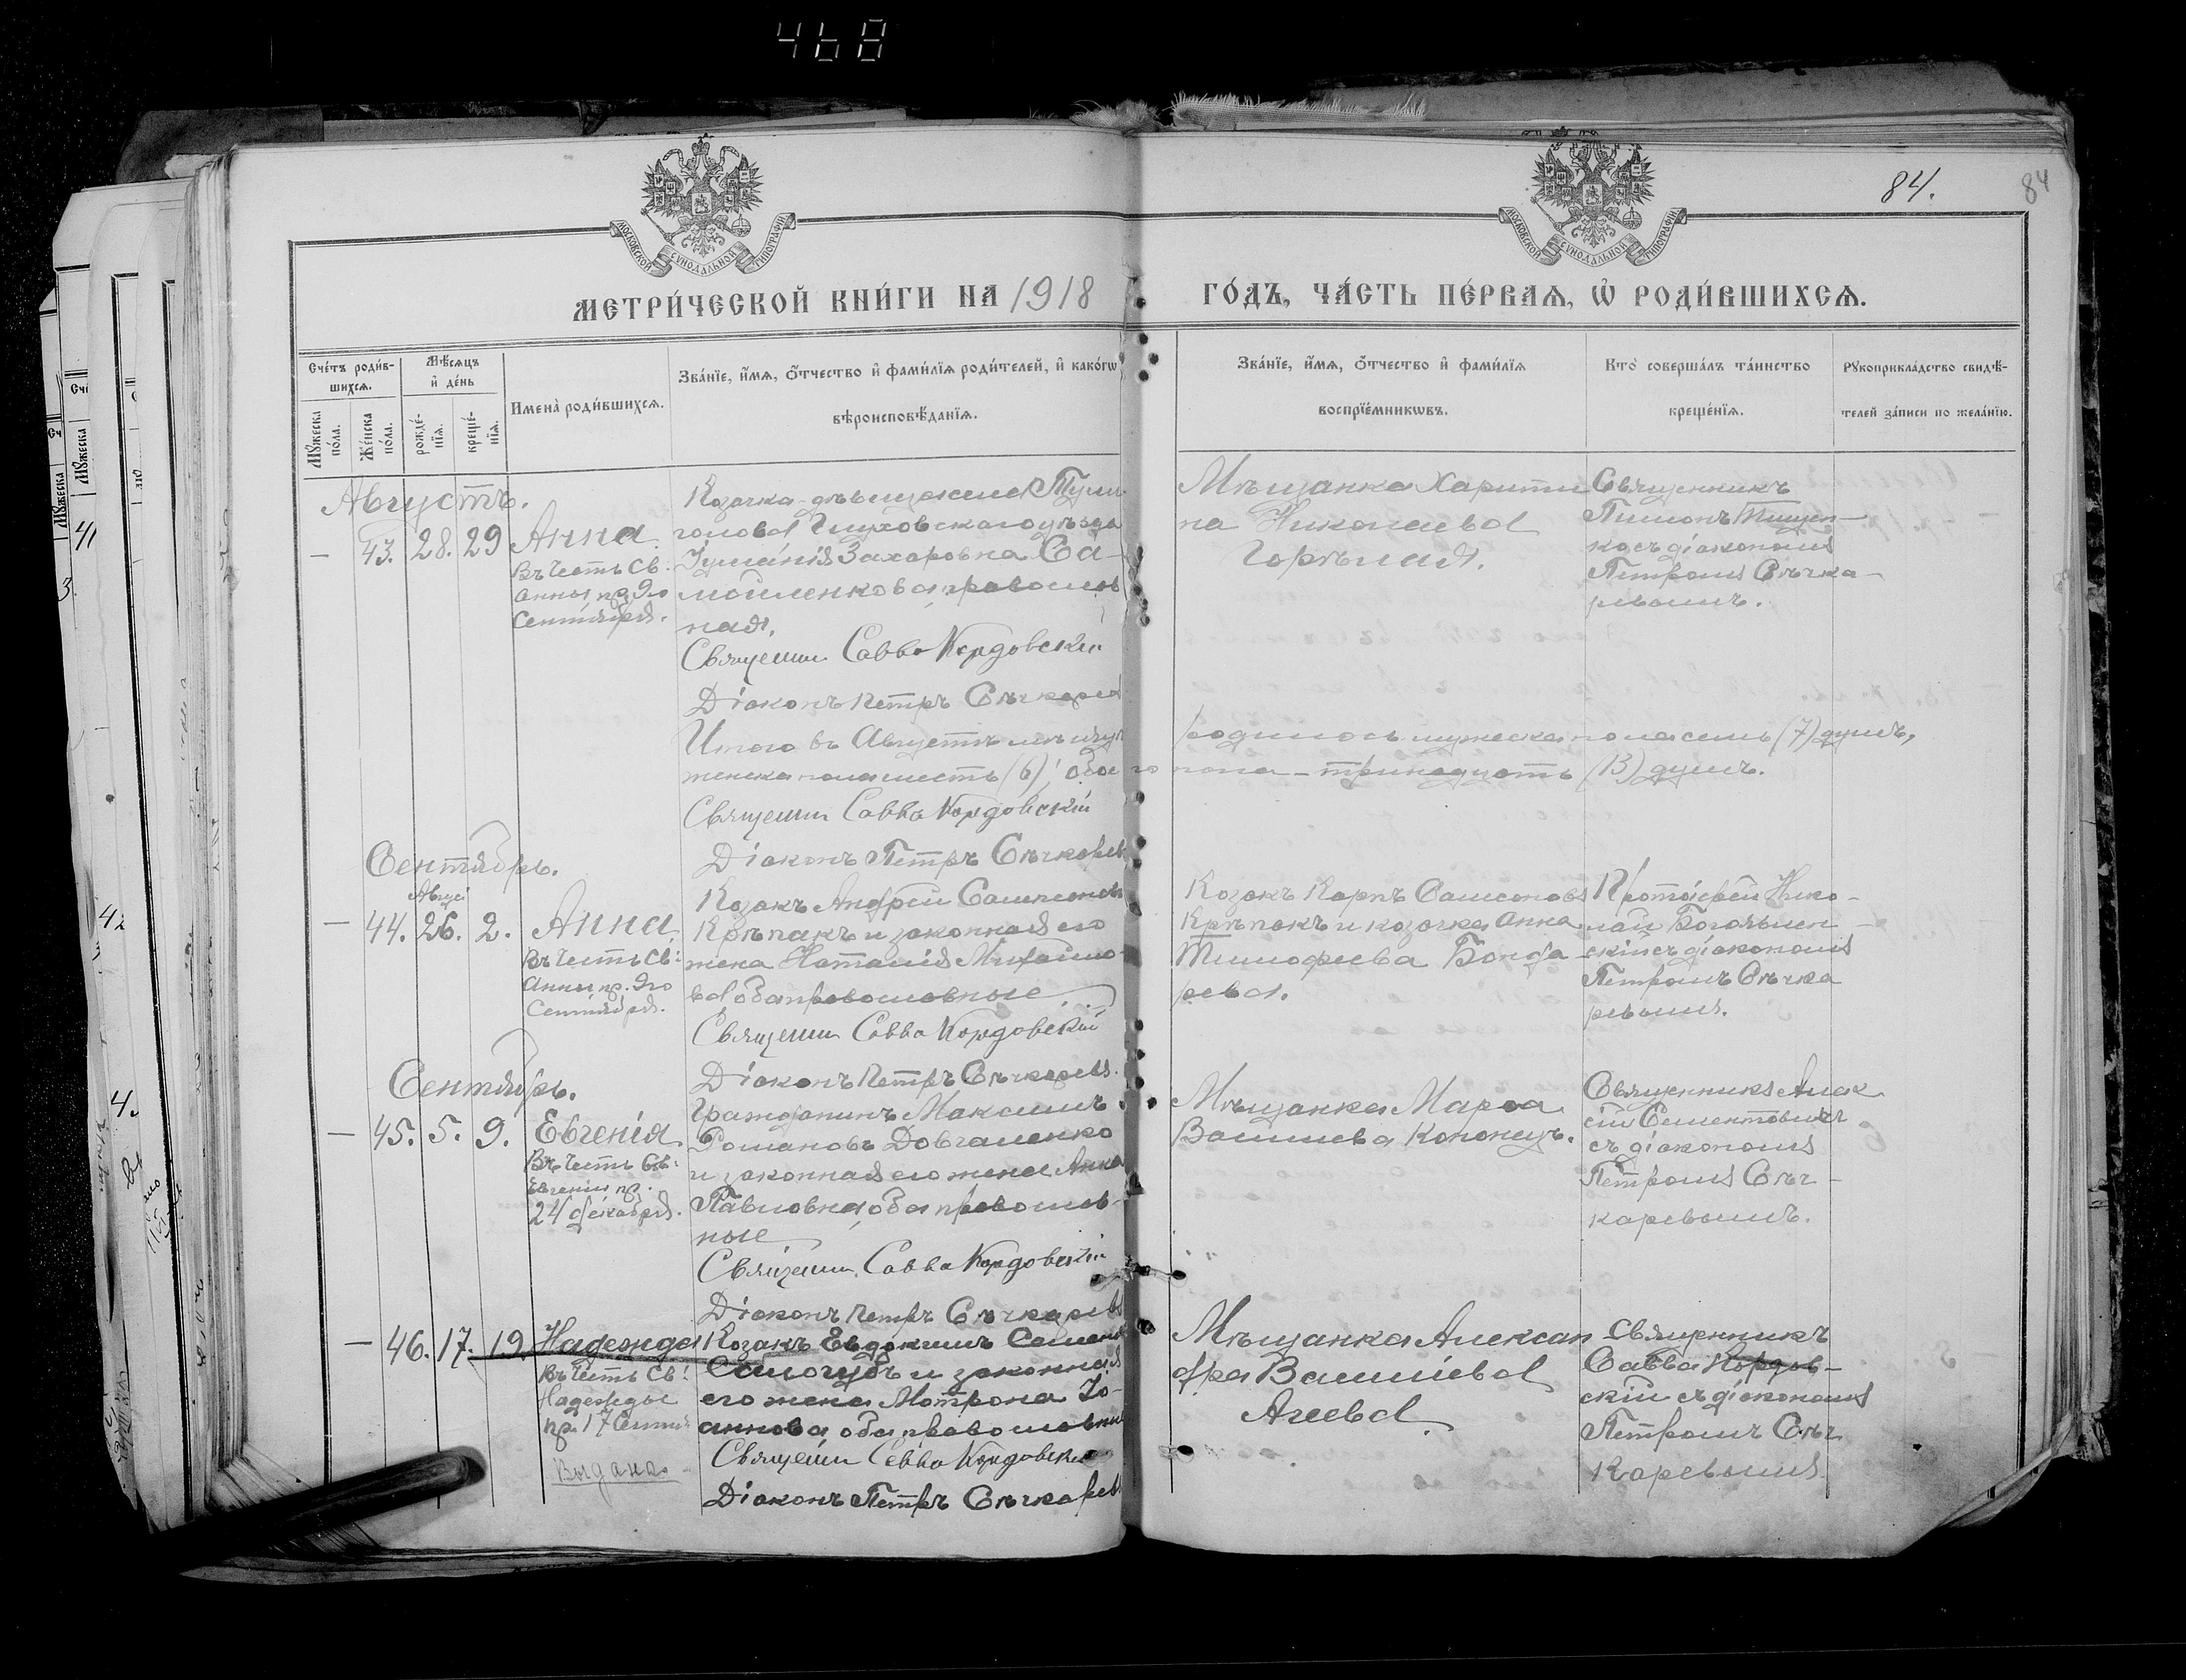 468
84.
84
МОСКОВСКОЙ СУНОДАЛЬНОЙ ТИПОГРАФІИ
МОСКОВСКОЙ СУНОДАЛЬНОЙ ТИПОГРАФІИ
МЕТРИ́ЧЕСКОЙ КНИ́ГИ НА 1918
ГО́ДЪ, ЧА́СТЬ ПЕ́РВАѦ, Ѽ РОДИ́ВШИХСѦ.
Сче́тъ роди́в-
шихсѧ.
Мꙋ́жеска по́ла.
Же́нска по́ла.
Мѣ́сѧцъ
и҆ де́нь
рожде́-
нїѧ.
креще́-
нїѧ.
И҆мена̀ роди́вшихсѧ.
Зва́нїе, и҆́мѧ, ѻ҆́тчество и҆ фами́лїѧ роди́телей, и҆ како́гѡ
вѣроисповѣ́данїѧ.
Зва́нїе, и҆́мѧ, ѻ҆́тчество и҆ фами́лїѧ
воспрїе́мникѡвъ.
Кто̀ соверша́лъ та́инство
креще́нїѧ.
Рꙋкоприкла́дство свидѣ́-
телей за́писи по жела́нїю.
Августъ.
— 43. 28. 29
Анна
Въ честь св.
Анны пр. 9го
Сентября.
Козачка-дѣвица села Тули
голова Глуховскаго уѣзда
Іуліанія Захаровна Са-
мойленкова православ
ная.
Священ. Савва Кордовскій
Діаконъ Петръ Сѣчкаревъ
Мѣщанка Харити
на Николаева
Горѣлая.
Священникъ
Пименъ Тищен-
ко съ діакономъ
Петромъ Сѣчка-
ревымъ.
Итого въ Августѣ мѣсяцѣ родилось мужеска пола семь (7) душъ,
женска пола шесть (6), обоего пола – тринадцать (13) душъ.
Священ. Савва Кордовскій
Діаконъ Петръ Сѣчкаревъ
Сентябрь.
Авгус
— 44. 26. 2.
Анна
Въ честь св.
Анны пр. 9го
Сентября.
Козакъ Андрей Самсоновъ
Крѣпакъ и законная его
жена Наталія Михайло-
ва оба православные
Священ. Савва Кордовскій
Діаконъ Петръ Сѣчкаревъ.
Козакъ Карпъ Самсоновъ
Крѣпакъ и козачка Анна
Тимофеева Бонда-
рева.
Протоіерей Нико-
лай Боголъмен
скій съ діакономъ
Петромъ Сѣчка
ревымъ.
Сентябрь.
— 45. 5. 9.
Евгенія
Въ честь св.
Евгеніи пр.
24 декабря.
Гражданинъ Максимъ
Романовъ Довгаленко
и законная его жена Анна
Павловна, оба православ-
ные
Священ. Савва Кордовскій
Діаконъ Петръ Сѣчкаревъ
Мѣщанка Марѳа
Васильева Кононецъ.
Священникъ Алек
сій Сементовичъ
съ діакономъ
Петромъ Сѣч-
каревымъ.
— 46. 17. 19.
Надежда
Въ честь св.
Надежды
пр. 17 Сент.
Выдана
Козакъ Евдокимъ Семенов
Самогубъ и законная
его жена Матрона Іо-
аннова оба православные
Священ. Савва Кордовскій
Діаконъ Петръ Сѣчкаревъ
Мѣщанка Алексан
дра Васильева
Агеева.
Священникъ
Савва Кордов-
скій съ діакономъ
Петромъ Сѣч
каревымъ.